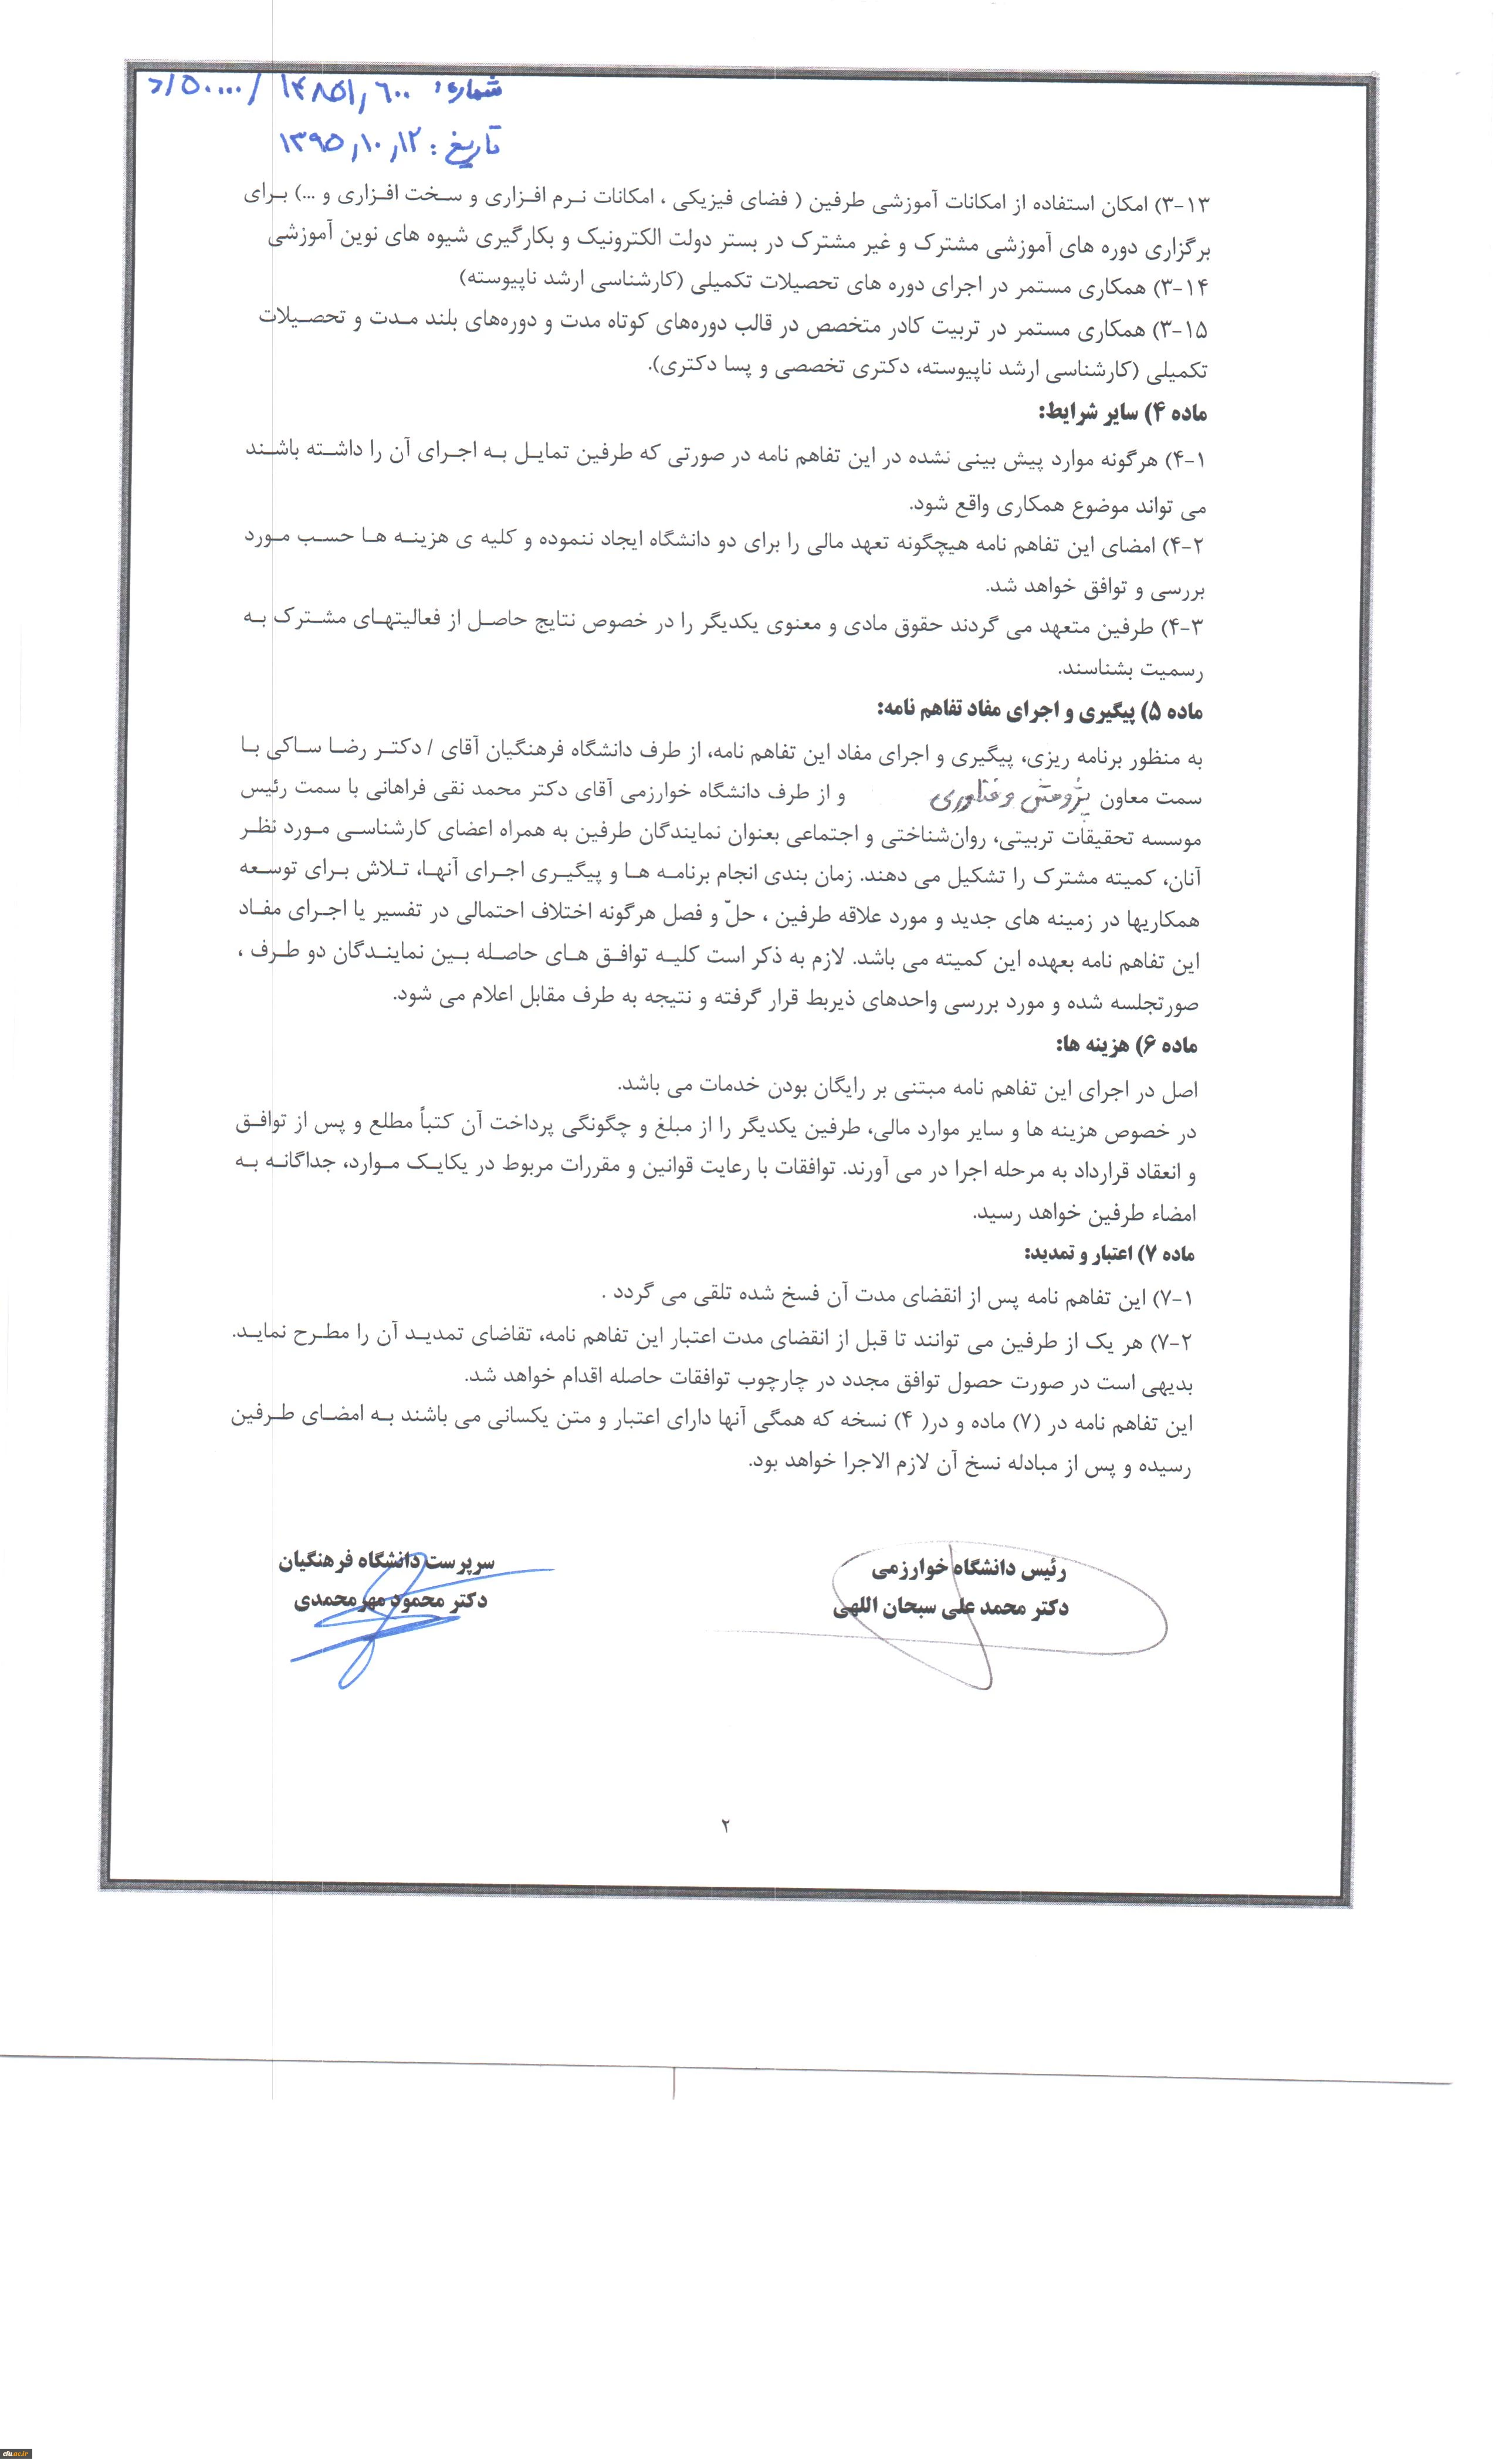 شماره: ۱۴۸۵۱٫۶۰۰ /۵۰۰۰۰/د
تاریخ: ۱۳۹۵٫۱۰٫۱۲
۳-۱۳) امکان استفاده از امکانات آموزشی طرفین ( فضای فیزیکی ، امکانات نرم افزاری و سخت افزاری و ...) برای
برگزاری دوره های آموزشی مشترک و غیر مشترک در بستر دولت الکترونیک و بکارگیری شیوه های نوین آموزشی
۳-۱۴) همکاری مستمر در اجرای دوره های تحصیلات تکمیلی (کارشناسی ارشد ناپیوسته)
۳-۱۵) همکاری مستمر در تربیت کادر متخصص در قالب دوره‌های کوتاه مدت و دوره‌های بلند مدت و تحصیلات
تکمیلی (کارشناسی ارشد ناپیوسته، دکتری تخصصی و پسا دکتری).
ماده ۴) سایر شرایط:
۴-۱) هرگونه موارد پیش بینی نشده در این تفاهم نامه در صورتی که طرفین تمایل به اجرای آن را داشته باشند
می تواند موضوع همکاری واقع شود.
۴-۲) امضای این تفاهم نامه هیچگونه تعهد مالی را برای دو دانشگاه ایجاد ننموده و کلیه ی هزینه ها حسب مورد
بررسی و توافق خواهد شد.
۴-۳) طرفین متعهد می گردند حقوق مادی و معنوی یکدیگر را در خصوص نتایج حاصل از فعالیتهای مشترک به
رسمیت بشناسند.
ماده ۵) پیگیری و اجرای مفاد تفاهم نامه:
به منظور برنامه ریزی، پیگیری و اجرای مفاد این تفاهم نامه، از طرف دانشگاه فرهنگیان آقای / دکتر رضا ساکی با
سمت معاون پژوهش و فناوری و از طرف دانشگاه خوارزمی آقای دکتر محمد نقی فراهانی با سمت رئیس
موسسه تحقیقات تربیتی، روان‌شناختی و اجتماعی بعنوان نمایندگان طرفین به همراه اعضای کارشناسی مورد نظر
آنان، کمیته مشترک را تشکیل می دهند. زمان بندی انجام برنامه ها و پیگیری اجرای آنها، تلاش برای توسعه
همکاریها در زمینه های جدید و مورد علاقه طرفین ، حلّ و فصل هرگونه اختلاف احتمالی در تفسیر یا اجرای مفاد
این تفاهم نامه بعهده این کمیته می باشد. لازم به ذکر است کلیه توافق های حاصله بین نمایندگان دو طرف ،
صورتجلسه شده و مورد بررسی واحدهای ذیربط قرار گرفته و نتیجه به طرف مقابل اعلام می شود.
ماده ۶) هزینه ها:
اصل در اجرای این تفاهم نامه مبتنی بر رایگان بودن خدمات می باشد.
در خصوص هزینه ها و سایر موارد مالی، طرفین یکدیگر را از مبلغ و چگونگی پرداخت آن کتباً مطلع و پس از توافق
و انعقاد قرارداد به مرحله اجرا در می آورند. توافقات با رعایت قوانین و مقررات مربوط در یکایک موارد، جداگانه به
امضاء طرفین خواهد رسید.
ماده ۷) اعتبار و تمدید:
۷-۱) این تفاهم نامه پس از انقضای مدت آن فسخ شده تلقی می گردد .
۷-۲) هر یک از طرفین می توانند تا قبل از انقضای مدت اعتبار این تفاهم نامه، تقاضای تمدید آن را مطرح نماید.
بدیهی است در صورت حصول توافق مجدد در چارچوب توافقات حاصله اقدام خواهد شد.
این تفاهم نامه در (۷) ماده و در( ۴) نسخه که همگی آنها دارای اعتبار و متن یکسانی می باشند به امضای طرفین
رسیده و پس از مبادله نسخ آن لازم الاجرا خواهد بود.
رئیس دانشگاه خوارزمی
دکتر محمد علی سبحان اللهی
سرپرست دانشگاه فرهنگیان
دکتر محمود مهرمحمدی
۲
cfu.ac.ir